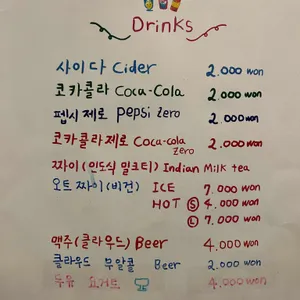 Drinks
사이다 Cider 2.000 won
코카콜라 Coca-Cola 2.000 won
펩시 제로 pepsi zero 2.000 won
코카콜라 제로 Coca-cola zero 2.000 won
짜이 (인도식 밀크티) Indian Milk tea
오트 짜이 (비건) ICE 7.000 won
HOT S 4.000 won
L 7.000 won
맥주 (클라우드) Beer 4.000 won
클라우드 무알콜 Beer 2.000 won
두유 요거트 4.000 won